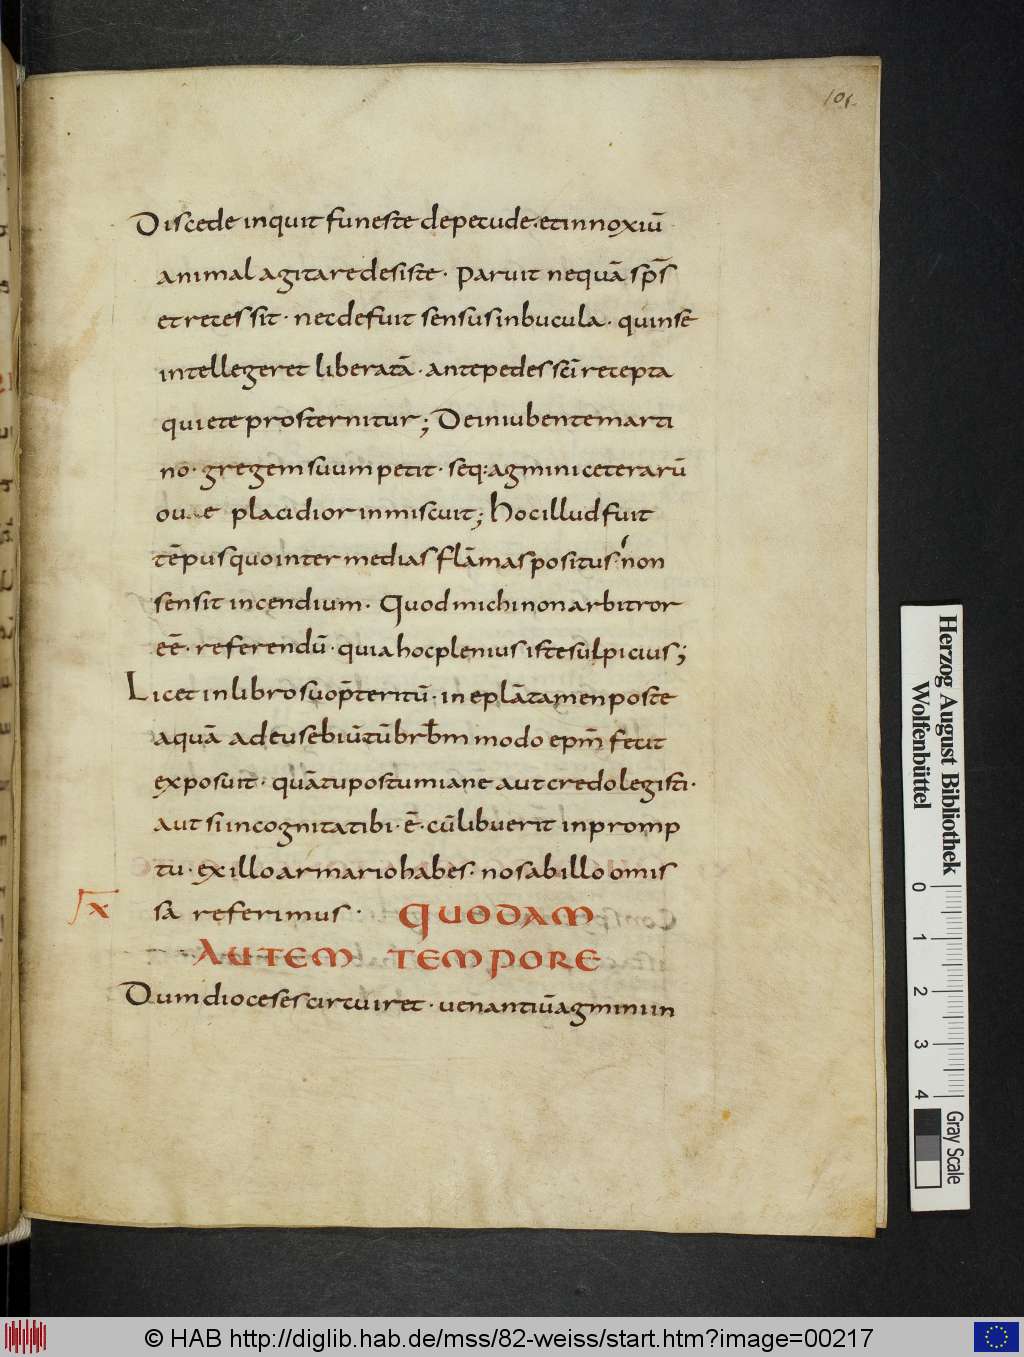 101
Discede inquit funeste depecude · et innoxiū
animal agitare desiste · Paruit nequā sp̄s
et recessit · nec defuit sensus in bucula · quin se
intellegeret liberatā · ante pedes sc̄i recepta
quiete prosternitur ; Dein iubente marti
no · gregem suum petit · seq: agmini ceterarū
ou e placidior inmiscuit ; Hoc illud fuit
tēpus quo inter medias flāmas positus · non
sensit incendium · Quod michi non arbitror
eē · referendū · quia hoc plenius iste sulpicius ;
Licet in libro suo p̄teritū · in eplā tamen poste
a quā ad eusebiū tū prb̄m modo epm̄ fecit
exposuit · quā tu postumiane aut credo legisti ·
aut si incognita tibi · ē · cū libuerit in promp
tu · ex illo armario habes · nos ab illo omis
sa referimus · QUODAM
IX
AUTEM TEMPORE
Dum dioceses circuiret · uenantiū agmini in
Herzog August Bibliothek
Wolfenbüttel
0 1 2 3 4
Gray Scale
© HAB http://diglib.hab.de/mss/82-weiss/start.htm?image=00217